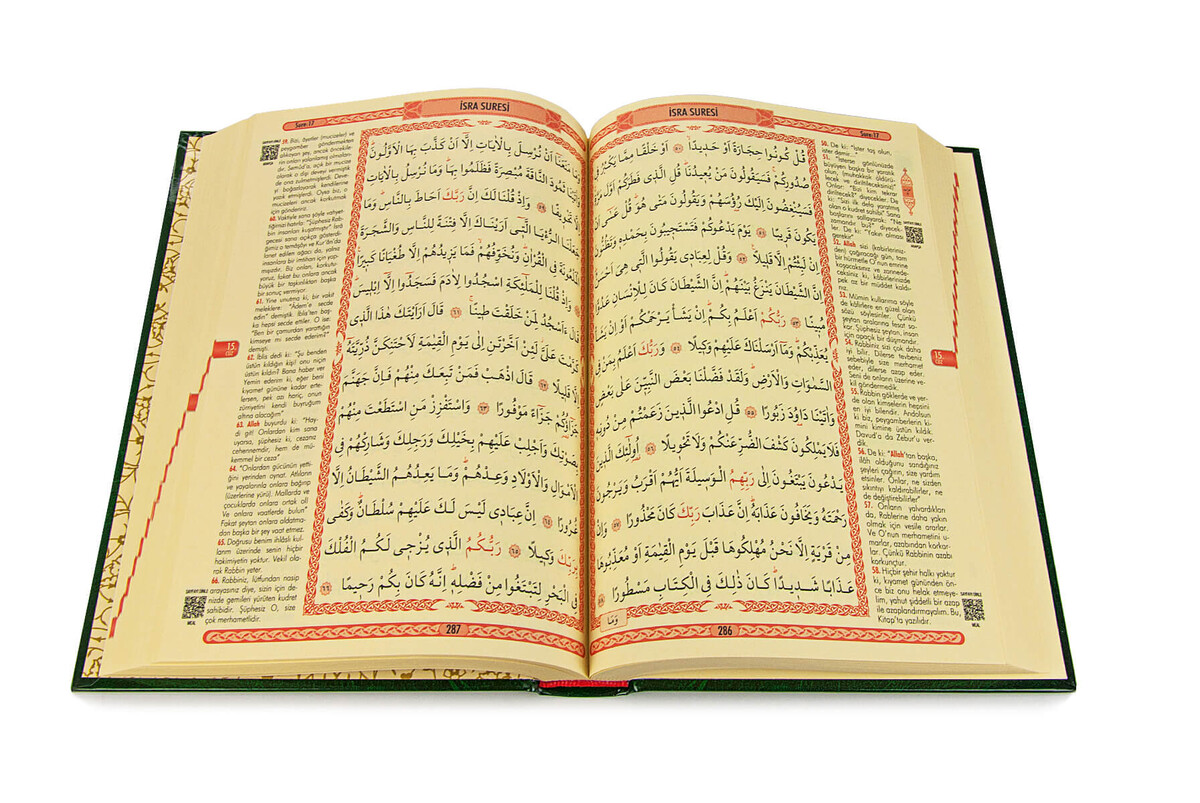 İSRA SURESİ
Sure:17
قُلْ كُونُوا حِجَارَةً اَوْ حَدِيدًا ﴿٥٠﴾ اَوْ خَلْقًا مِمَّا يَكْبُرُ
صُدُورِكُمْ فَسَيَقُولُونَ مَنْ يُعِيدُنَا قُلِ الَّذِى فَطَرَكُمْ اَوَّلَ
فَسَيُنْغِضُونَ اِلَيْكَ رُؤُسَهُمْ وَيَقُولُونَ مَتٰى هُوَ قُلْ عَسٰٓى
يَكُونَ قَرِيبًا ﴿٥١﴾ يَوْمَ يَدْعُوكُمْ فَتَسْتَجِيبُونَ بِحَمْدِهِ وَتَظُنُّونَ
اِنْ لَبِثْتُمْ اِلَّا قَلِيلًا ﴿٥٢﴾ وَقُلْ لِعِبَادِى يَقُولُوا الَّتِى هِىَ اَحْسَنُ
اِنَّ الشَّيْطَانَ يَنْزَغُ بَيْنَهُمْ اِنَّ الشَّيْطَانَ كَانَ لِلْاِنْسَانِ عَدُوًّا
مُبِينًا ﴿٥٣﴾ رَبُّكُمْ اَعْلَمُ بِكُمْ اِنْ يَشَأْ يَرْحَمْكُمْ اَوْ اِنْ يَشَأْ
يُعَذِّبْكُمْ وَمَٓا اَرْسَلْنَاكَ عَلَيْهِمْ وَكِيلًا ﴿٥٤﴾ وَرَبُّكَ اَعْلَمُ بِمَنْ
السَّمٰوَاتِ وَالْاَرْضِ وَلَقَدْ فَضَّلْنَا بَعْضَ النَّبِيّنَ عَلٰى بَعْضٍ
وَاٰتَيْنَا دَاوُدَ زَبُورًا ﴿٥٥﴾ قُلِ ادْعُوا الَّذِينَ زَعَمْتُمْ مِنْ دُونِهِ
فَلَا يَمْلِكُونَ كَشْفَ الضُّرِّ عَنْكُمْ وَلَا تَحْوِيلًا ﴿٥٦﴾ اُولٰٓئِكَ الَّذِينَ
يَدْعُونَ يَبْتَغُونَ اِلٰى رَبِّهِمُ الْوَسِيلَةَ اَيُّهُمْ اَقْرَبُ وَيَرْجُونَ
رَحْمَتَهُ وَيَخَافُونَ عَذَابَهُ اِنَّ عَذَابَ رَبِّكَ كَانَ مَحْذُورًا ﴿٥٧﴾ وَاِنْ
مِنْ قَرْيَةٍ اِلَّا نَحْنُ مُهْلِكُوهَا قَبْلَ يَوْمِ الْقِيٰمَةِ اَوْ مُعَذِّبُوهَا
عَذَابًا شَدِيدًا كَانَ ذٰلِكَ فِى الْكِتَابِ مَسْطُورًا ﴿٥٨﴾
وَمَا
50. De ki: "İster taş olun,
ister demir..."
51. "İsterse gönlünüzde
büyüyen başka bir yaratık
olun, (muhakkak öldürü-
lecek ve diriltileceksiniz!"
Onlar: "Bizi kim tekrar
diriltecek?" diyecekler. De
ki: "Sizi ilk defa yaratmış
olan o kudret sahibi." Sana
başlarını sallayarak: "Ne
zamandır bu?" diyecek-
ler. De ki: "Yakın olması
gerekir"
52. Allah sizi (kabirleriniz-
den) çağıracağı gün, tam
bir hürmetle O'nun emrine
koşacaksınız ve zannede-
ceksiniz ki, kabirlerinizde
pek az bir müddet kaldı-
nız.
53. Mümin kullarıma söyle
de kâfirlere en güzel olan
sözü söylesinler. Çünkü
şeytan aralarına fesat so-
kar. Şüphesiz şeytan, insan
için apaçık bir düşmandır.
54. Rabbiniz sizi çok daha
iyi bilir. Dilerse tevbeniz
sebebiyle size merhamet
eder, dilerse azap eder.
Seni de onların üzerine ve-
kil göndermedik.
55. Rabbin göklerde ve yer-
de olan kimselerin hepsini
en iyi bilendir. Andolsun
ki biz, peygamberlerin ki-
mini kimine üstün kıldık.
Davud'a da Zebur'u ver-
dik.
56. De ki: "Allah'tan başka,
ilâh olduğunu sandığınız
şeyleri çağırın, size yardım
etsinler. Onlar, ne sizden
sıkıntıyı kaldırabilirler, ne
de değiştirebilirler"
57. Onların yalvardıkları
da, Rablerine daha yakın
olmak için vesile ararlar.
Ve O'nun merhametini u-
marlar, azabından korkar-
lar. Çünkü Rabbinin azabı
korkunçtur.
58. Hiçbir şehir halkı yoktur
ki, kıyamet gününden ön-
ce biz onu helak etmeye-
lim, yahut şiddetli bir azap
ile azaplandırmayalım. Bu,
Kitap'ta yazılıdır.
15.
CÜZ
286
İSRA SURESİ
Sure:17
مَنَعَنَٓا اَنْ نُرْسِلَ بِالْاٰيَاتِ اِلَّٓا اَنْ كَذَّبَ بِهَا الْاَوَّلُونَ
ثَمُودَ النَّاقَةَ مُبْصِرَةً فَظَلَمُوا بِهَا وَمَا نُرْسِلُ بِالْاٰيَاتِ
تَخْوِيفًا ﴿٥٩﴾ وَاِذْ قُلْنَا لَكَ اِنَّ رَبَّكَ اَحَاطَ بِالنَّاسِ وَمَا
جَعَلْنَا الرُّءْيَا الَّتِٓى اَرَيْنَاكَ اِلَّا فِتْنَةً لِلنَّاسِ وَالشَّجَرَةَ
الْمَلْعُونَةَ فِى الْقُرْاٰنِ وَنُخَوِّفُهُمْ فَمَا يَزِيدُهُمْ اِلَّا طُغْيَانًا كَبِيرًا
وَاِذْ قُلْنَا لِلْمَلٰٓئِكَةِ اسْجُدُوا لِاٰدَمَ فَسَجَدُوا اِلَّٓا اِبْلِيسَ
قَالَ ءَاَسْجُدُ لِمَنْ خَلَقْتَ طِينًا ﴿٦١﴾ قَالَ اَرَاَيْتَكَ هٰذَا الَّذِى
كَرَّمْتَ عَلَىَّ لَئِنْ اَخَّرْتَنِ اِلٰى يَوْمِ الْقِيٰمَةِ لَاَحْتَنِكَنَّ ذُرِّيَّتَهُ
اِلَّا قَلِيلًا ﴿٦٢﴾ قَالَ اذْهَبْ فَمَنْ تَبِعَكَ مِنْهُمْ فَاِنَّ جَهَنَّمَ
جَزَٓاؤُكُمْ جَزَٓاءً مَوْفُورًا ﴿٦٣﴾ وَاسْتَفْزِزْ مَنِ اسْتَطَعْتَ مِنْهُمْ
بِصَوْتِكَ وَاَجْلِبْ عَلَيْهِمْ بِخَيْلِكَ وَرَجِلِكَ وَشَارِكْهُمْ فِى
الْاَمْوَالِ وَالْاَوْلَادِ وَعِدْهُمْ وَمَا يَعِدُهُمُ الشَّيْطَانُ اِلَّا
غُرُورًا ﴿٦٤﴾ اِنَّ عِبَادِى لَيْسَ لَكَ عَلَيْهِمْ سُلْطَانٌ وَكَفٰى
بِرَبِّكَ وَكِيلًا ﴿٦٥﴾ رَبُّكُمُ الَّذِى يُزْجِى لَكُمُ الْفُلْكَ
فِى الْبَحْرِ لِتَبْتَغُوا مِنْ فَضْلِهِ اِنَّهُ كَانَ بِكُمْ رَحِيمًا ﴿٦٦﴾
59. Bizi, âyetler (mucizeler) ve
peygamber göndermekten
alıkoyan şey, ancak öncekile-
rin onları yalanlamış olmaları-
dır. Semûd'a, açık bir mucize
olarak o dişi deveyi vermiştik
de ona zulmetmişlerdi. Deve-
yi boğazlayarak kendilerine
yazık etmişlerdi. Oysa biz, o
mucizeleri ancak korkutmak
için göndeririz.
60. Vaktiyle sana şöyle vahyet-
tiğimizi hatırla: "Şüphesiz Rab-
bin insanları kuşatmıştır". İsrâ
gecesi sana açıkça gösterdi-
ğimiz o temâşâyı ve Kur'ân'da
lanet edilen ağacı da, yalnız
insanlara bir imtihan için yap-
mışızdır. Biz onları, korkutu-
yoruz, fakat bu onlara ancak
büyük bir taşkınlıktan başka
bir sonuç vermiyor.
61. Yine unutma ki, bir vakit
meleklere: "Âdem'e secde
edin" demiştik. İblis'ten baş-
ka hepsi secde ettiler. O ise:
"Ben bir çamurdan yarattığın
kimseye mi secde ederim?"
demişti.
62. İblis dedi ki: "Şu benden
üstün kıldığın kişi! onu niçin
üstün kıldın? Bana haber ver
Yemin ederim ki, eğer beni
kıyamet gününe kadar erte-
lersen, pek azı hariç, onun
zürriyetini kendi buyruğum
altına alacağım"
63. Allah buyurdu ki: "Hay-
di git! Onlardan kim sana
uyarsa, şüphesiz ki, cezanız
cehennemdir, hem de mü-
kemmel bir ceza"
64. "Onlardan gücünün yetti-
ğini yerinden oynat. Atlıların
ve yayalarınla onlara bağırıp
(üzerlerine yürü). Mallarda ve
çocuklarda onlara ortak ol!
Ve onlara vaatlerde bulun"
Fakat şeytan onlara aldatma-
dan başka bir şey vaat etmez.
65. Doğrusu benim ihlâslı kul-
larım üzerinde senin hiçbir
hakimiyetin yoktur. Vekil ola-
rak Rabbin yeter.
66. Rabbiniz, lütfundan nasip
arayasınız diye, sizin için de-
nizde gemileri yürüten kudret
sahibidir. Şüphesiz O, size
çok merhametlidir.
15.
CÜZ
287